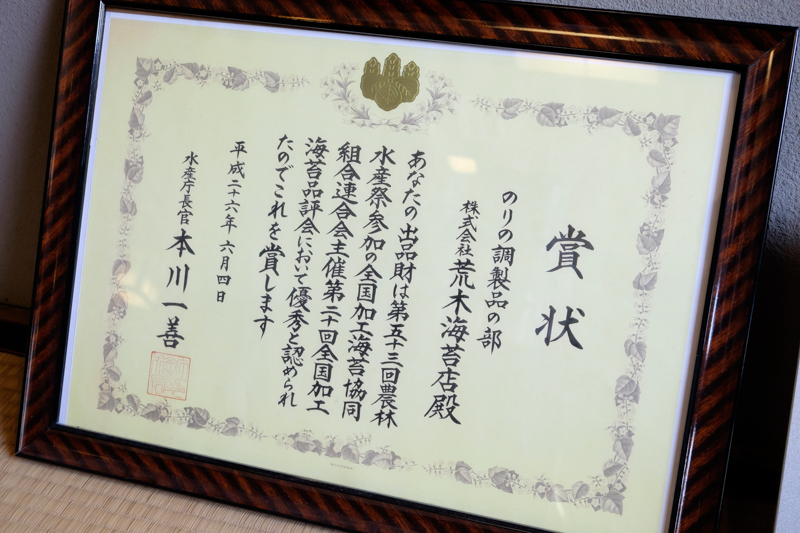 賞状
のりの調製品の部
株式会社荒木海苔店殿
あなたの出品財は第五十三回農林
水産祭参加の全国加工海苔協同
組合連合会主催第二十回全国加工
海苔品評会において優秀と認められ
たのでこれを賞します
平成二十六年六月四日
水産庁長官本川一善